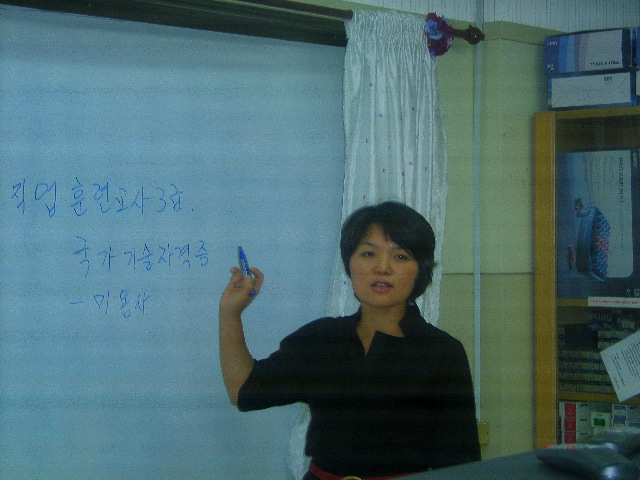 직업 훈련교사 3급.
국가기술자격증
- 미용사